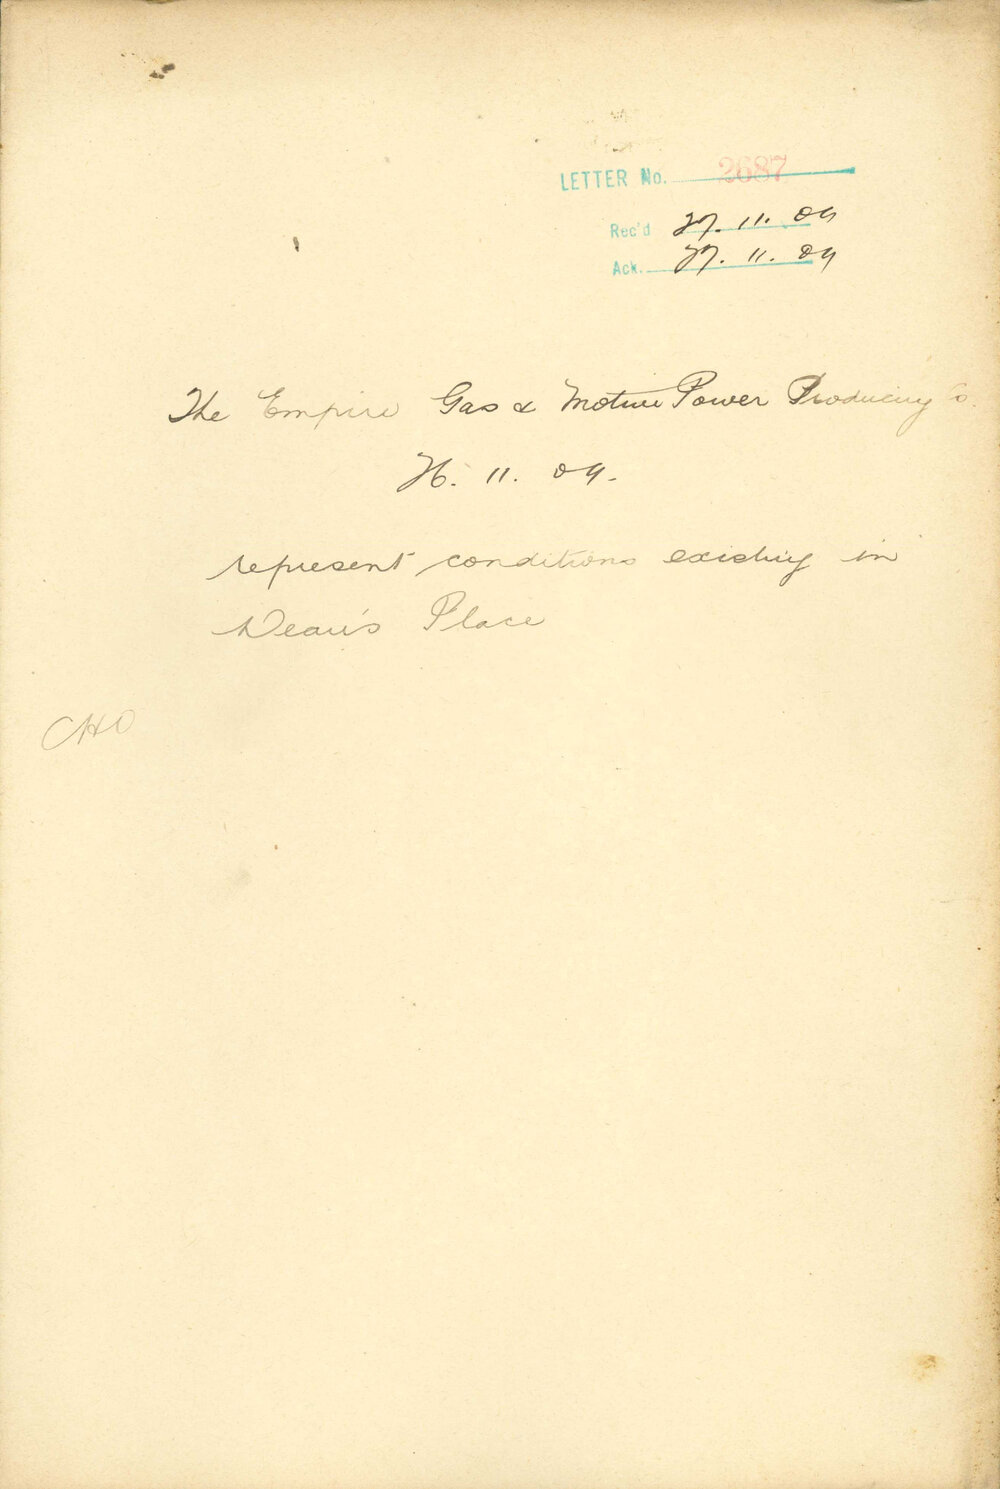 LETTER No. 2687
Rec'd 27. 11. 04
Ack. 27. 11. 04
The Empire Gas & Motive Power Producing Co.
26. 11. 04.
represent conditions existing in
Dean's Place
CHO